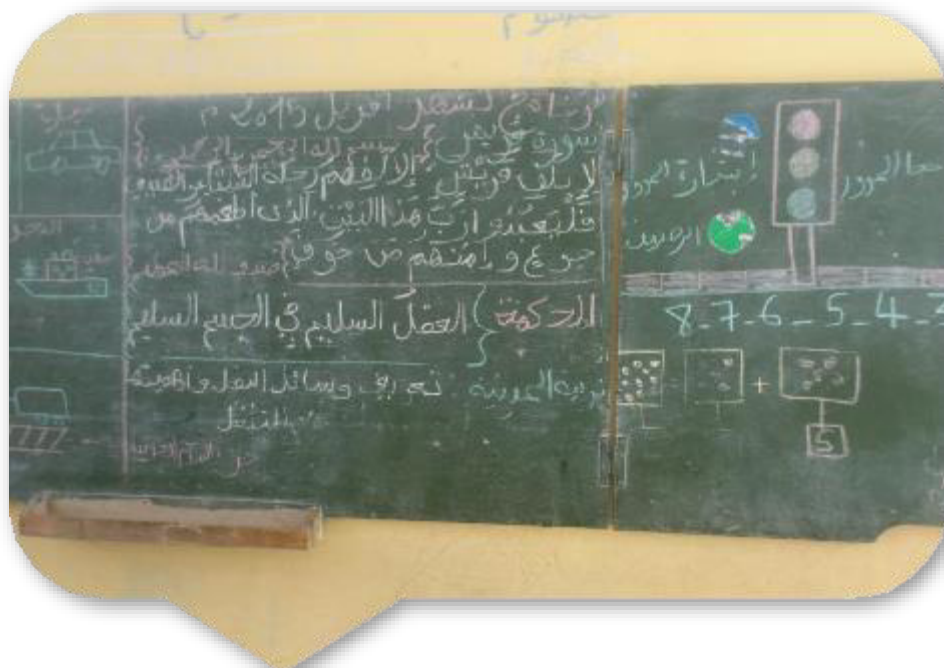 برنامج لشهر أفريل 2015 م
سورة قريش { بسم الله الرحمن الرحيم }
لإيلف قريش إلفهم رحلة الشتاء والصيف
فليعبدوا رب هذا البيت الذي أطعمهم من
جوع وءامنهم من خوف } صدق الله العظيم
الحكمة ) العقل السليم في الجسم السليم
تربية المرورية : تعريف وسائل النقل و أهميتها
إشارة المرور
المرور
الرصيف
8-7-6-5-4-3
+
5